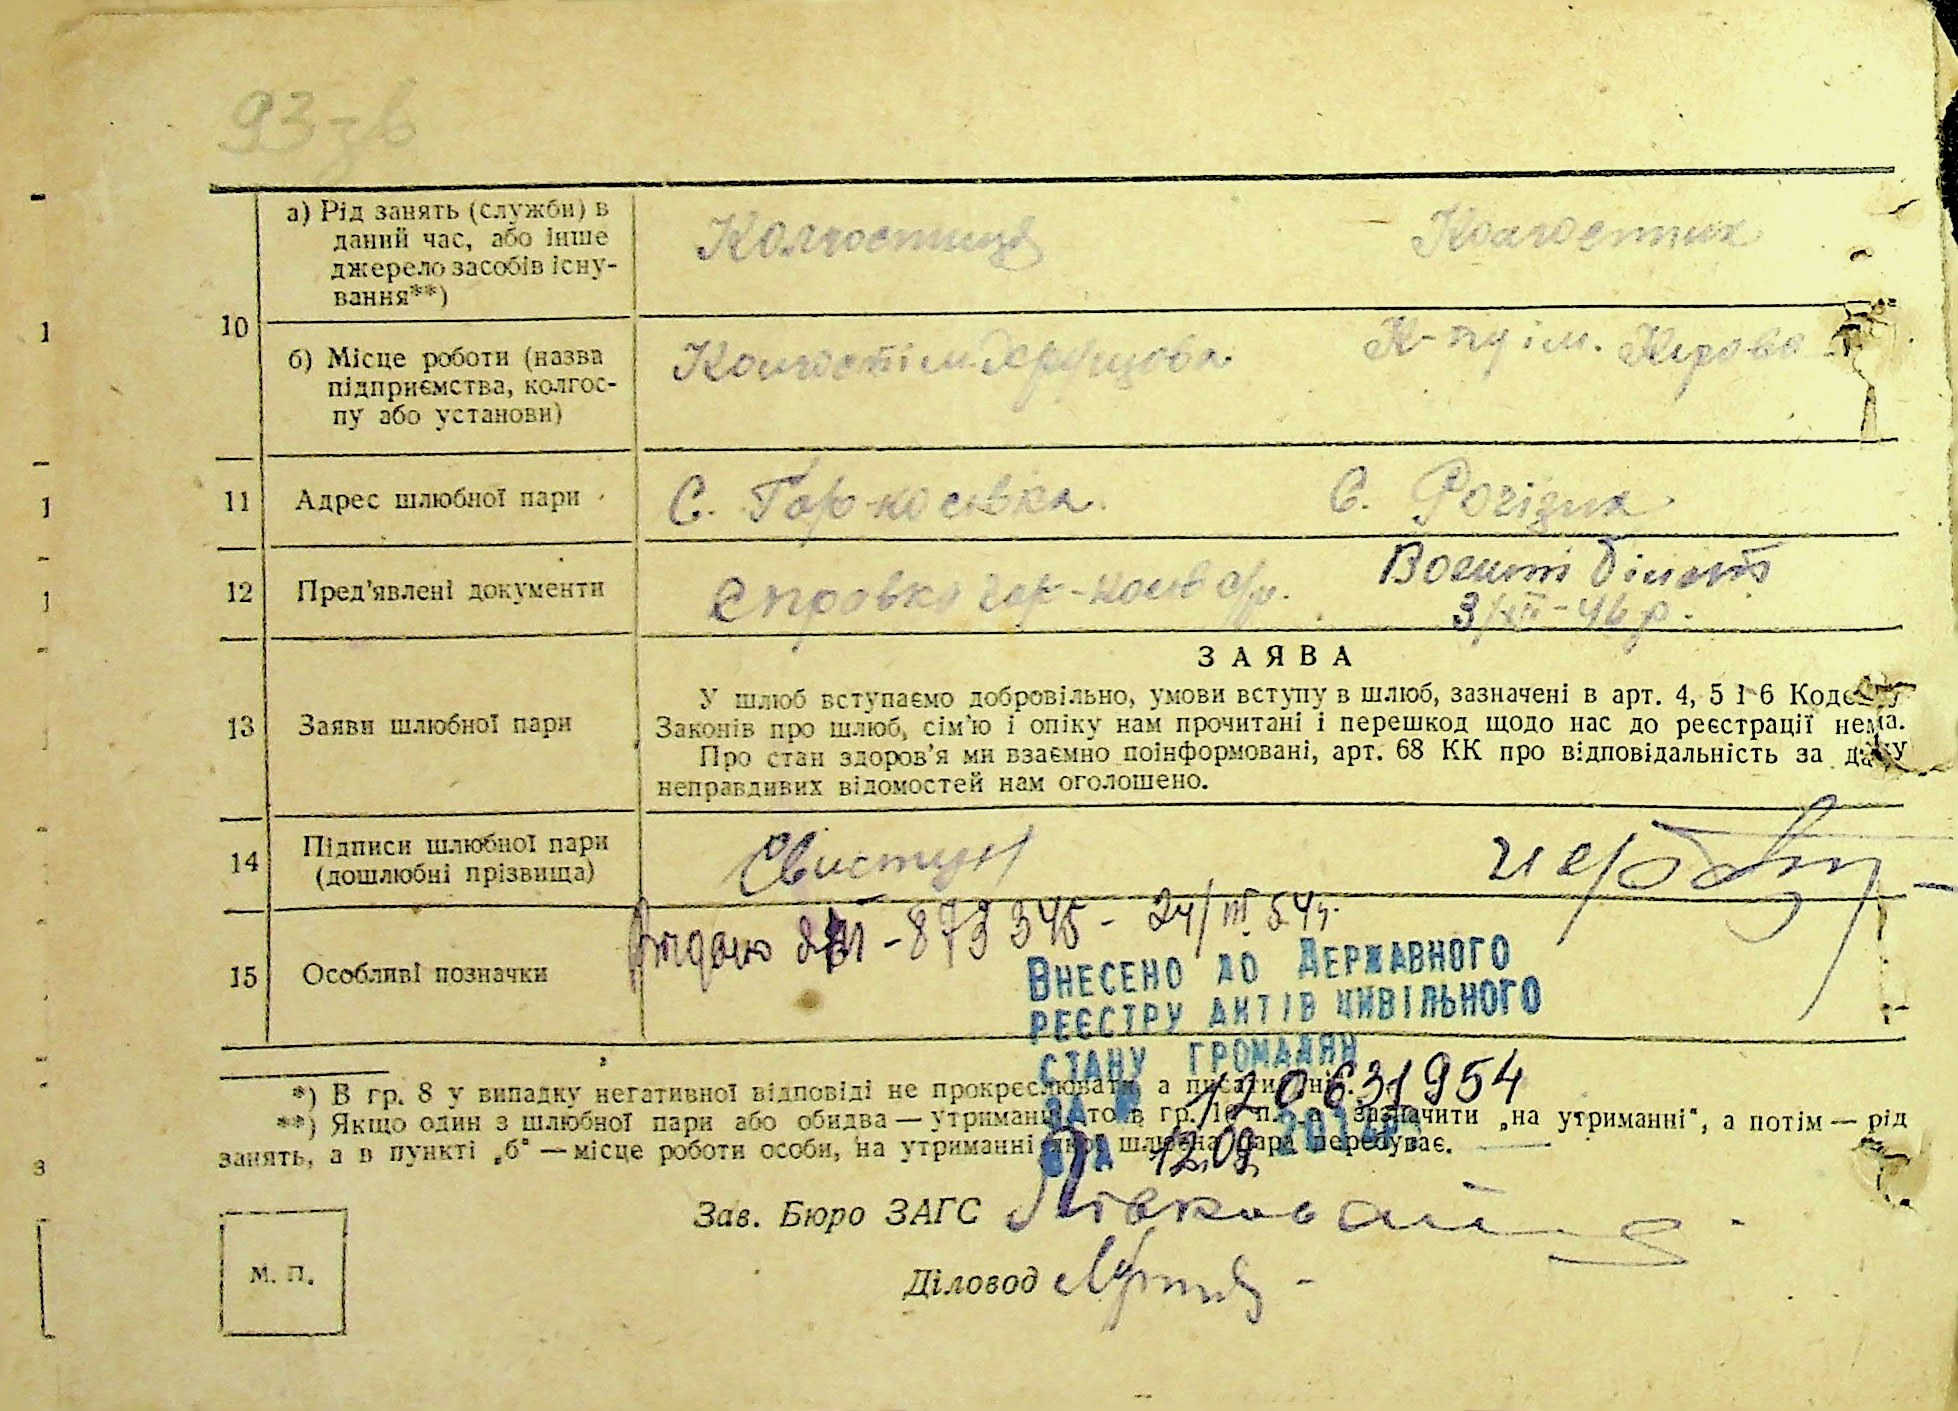 93 зв
а) Рід занять (служби) в
даний час, або інше
джерело засобів існу-
вання**)
Колгоспниця
Колгоспник
10
б) Місце роботи (назва
підприємства, колгос-
пу або установи)
Колгосп ім.
К-пу ім. Кірова
11
Адрес шлюбної пари
С.
С.
12
Пред'явлені документи
Справка
Воєнний білет
3/XII-46 р.
13
Заяви шлюбної пари
ЗАЯВА
У шлюб вступаємо добровільно, умови вступу в шлюб, зазначені в арт. 4, 5 і 6 Кодексу
Законів про шлюб, сім'ю і опіку нам прочитані і перешкод щодо нас до реєстрації нема.
Про стан здоров'я ми взаємно поінформовані, арт. 68 КК про відповідальність за дачу
неправдивих відомостей нам оголошено.
14
Підписи шлюбної пари
(дошлюбні прізвища)
Свистун
15
Особливі позначки
Видано - 873345 - 24/III 54р.
Внесено до Державного
реєстру актів цивільного
стану громадян
за № 120631954
від 12.09. 201
*) В гр. 8 у випадку негативної відповіді не прокреслювати, а писати „ні“.
**) Якщо один з шлюбної пари або обидва — утриманці, то в гр. 10 п. зазначити „на утриманні“, а потім — рід
занять, а в пункті „б“ — місце роботи особи, на утриманні якої шлюбна пара перебуває.
Зав. Бюро ЗАГС
М. П.
Діловод